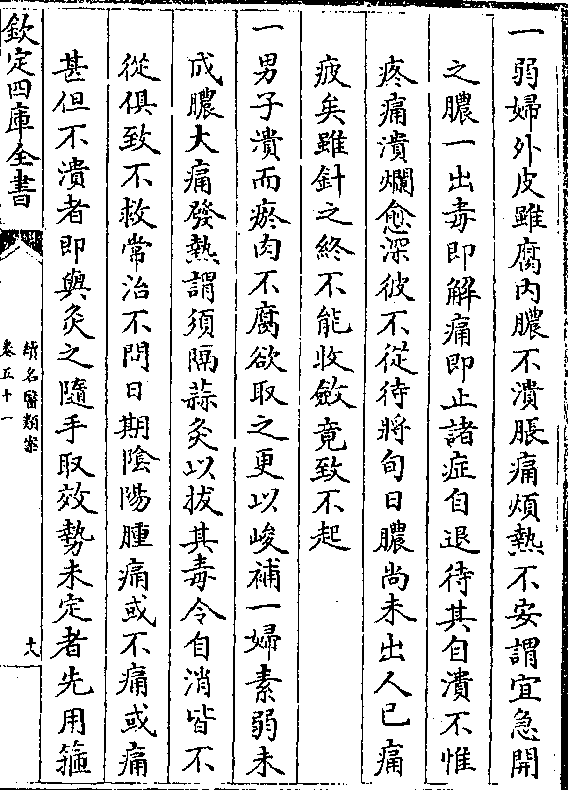 一弱婦外皮雖腐内膿不潰脹痛煩熱不安謂宜急開
之膿一出毒即解痛即止諸症自退待其自潰不惟
疼痛潰爛愈深彼不從待將旬日膿尚未出人已痛
疲矣雖針之終不能收斂竟致不起
一男子潰而瘀肉不腐欲取之更以峻補一婦素弱未
成膿大痛發熱謂須隔蒜灸以拔其毒令自消皆不
從俱致不救常治不問日期陰陽腫痛或不痛或痛
甚但不潰者即與灸之隨手取效勢未定者先用箍
欽定四庫全書
續名醫類案
卷五十一
大